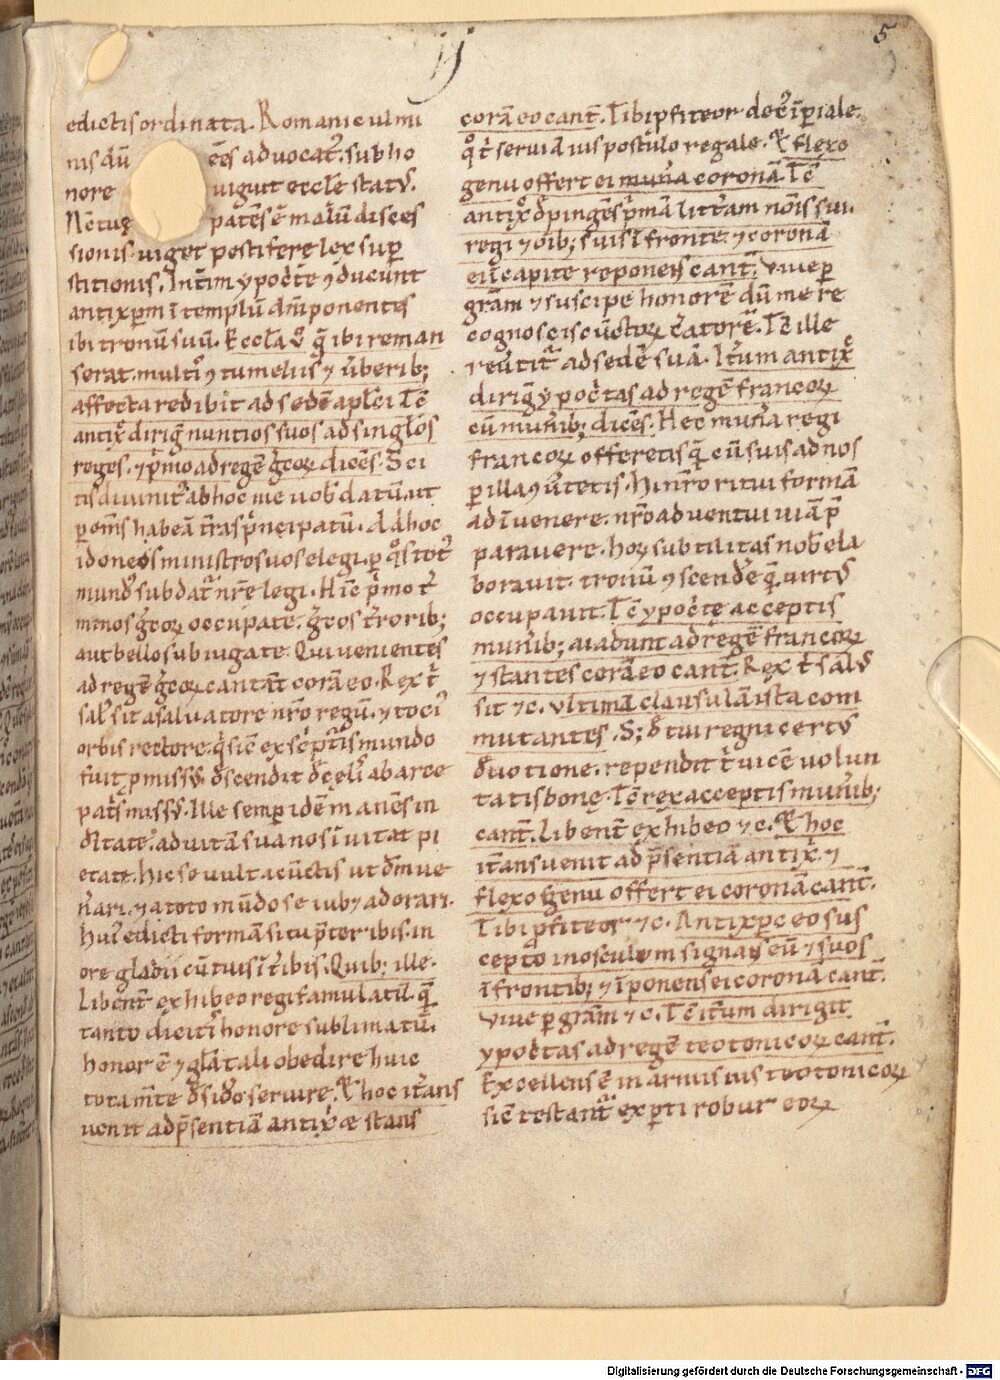 5
edictis ordinata. Romani culmi
nis dū ēēs advocat᷑. sub ho
nore viguit eccl̄e statꝰ.
Nc̄ tuę patens ē malū disces
sionis. viget pestifere lex sup̄
stitionis. Int̄im ypoc̄te ꝯducunt
antixp̄m ī templū dn̄i ponentes
ibi tronū suū. Eccl̄a v̊ q̄ ibi reman
serat. multis ꝯtumeliis ⁊ v̄berib;
affecta redibit ad sedē apl̄ci Tc̄
antix̄ dirig᷑ nuntios suos ad singl̄os
reges. ⁊ p̄mo ad regē ḡcoꝝ dicēs. Sci
tis divinit᷑ ab hoc me vob̄ datū. ut
ꝑ om̄s habeā t̄ras p̄ncipatū. Ad hoc
idoneos ministros vos elegi. ꝑ qͦs tot᷑
mundꝰ subdat᷑ nr̄e legi. Hīc p̄mo t̄
minos ḡcoꝝ occupate. ḡcos t̄rorib;
aut bello subiugate. Qui venientes
ad regē ḡcoꝝ cantāt corā eo. Rex t̄
salꝰ sit a salvatore nr̄o regū. ⁊ tociꝰ
orbis rectore. q̇ sic̄ ex sc̄ptis mundo
fuit ꝓmissꝰ. descendit de celis ab arce
pat̄s missꝰ. Ille semp̄ idē manēs in
ditate. ad vitā sua nos īvitat pi
etate. hic se vult a cūctis ut dm̄ ve
n̄ari. ⁊ a toto mūdo se iub⁊ adorari.
huiꝰ edicti formā si tu p̄teribis. in
ore gladii cū tuis īt̄ibis. Quib; ille.
Libent᷑ exhibeo regi famulatū. q̄
tanto dicit᷑ honore sublimatū.
honor ē ⁊ gl̄a tali obedire huic
tota m̄te desidero servire. Et hoc it̄ans
venit ad p̄sentiā antix̄ ⁊ stans
corā eo cant̄. Tibi ꝓfiteor decꝰ īꝑiale.
qͦ t̄ serviā ius postulo regale. Et flexo
genu offert ei mun̄a coronā. Tc̄
antix̄ depingēs p̄mā litt̄am nōis sui
regi ⁊ oīb; suis ī fronte. ⁊ coronā
ei ī capite reponens cant̄. Vive ꝑ
grām ⁊ suscipe honorē dū me re
cognoscis cūctoꝝ c̄atorē. Tc̄ ille
rev̄tit᷑ ad sedē suā. It̄um antix̄
dirig᷑ ypoc̄tas ad regē francoꝝ
cū munib; dicēs. Hec mun̄a regi
francoꝝ offeretis q̄ cū suis ad nos
ꝑ illa ꝯv̄tetis. Hi nr̄o ritui formā
adīvenere. nr̄o adventui viā p̄
paravere. hoꝝ subtilitas nob̄ ela
boravit. tronū ꝯscendere q̄ virtꝰ
occupavit. Tc̄ ypoc̄te acceptis
munib; vadunt ad regē francoꝝ
⁊ stantes corā eo cant̄. Rex t̄ salꝰ
sit ⁊c. ultimā clausulā ista com
mutantes. S; de tui regni certꝰ
devotione. rependit t̄ vicē volun
tatis bonę. Tc̄ rex acceptis munib;
cant̄. Libent᷑ exhibeo ⁊c. Et hoc
it̄ans venit ad p̄sentiā antix̄. ⁊
flexo genu offert ei coronā cant̄.
Tibi ꝓfiteor ⁊c. Antixp̄c eo sus
cepto in osculum signans eū ⁊ suos
ī frontib; ⁊ īponens ei coronā cant̄.
Vive ꝑ grām ⁊c. Tc̄ it̄um dirigit
ypoc̄tas ad regē teotonicoꝝ cant̄.
Excellens ē in armis vis teotonicoꝝ
sic̄ testant᷑ exꝑti robur eoꝝ
Digitalisierung gefördert durch die Deutsche Forschungsgemeinschaft - DFG